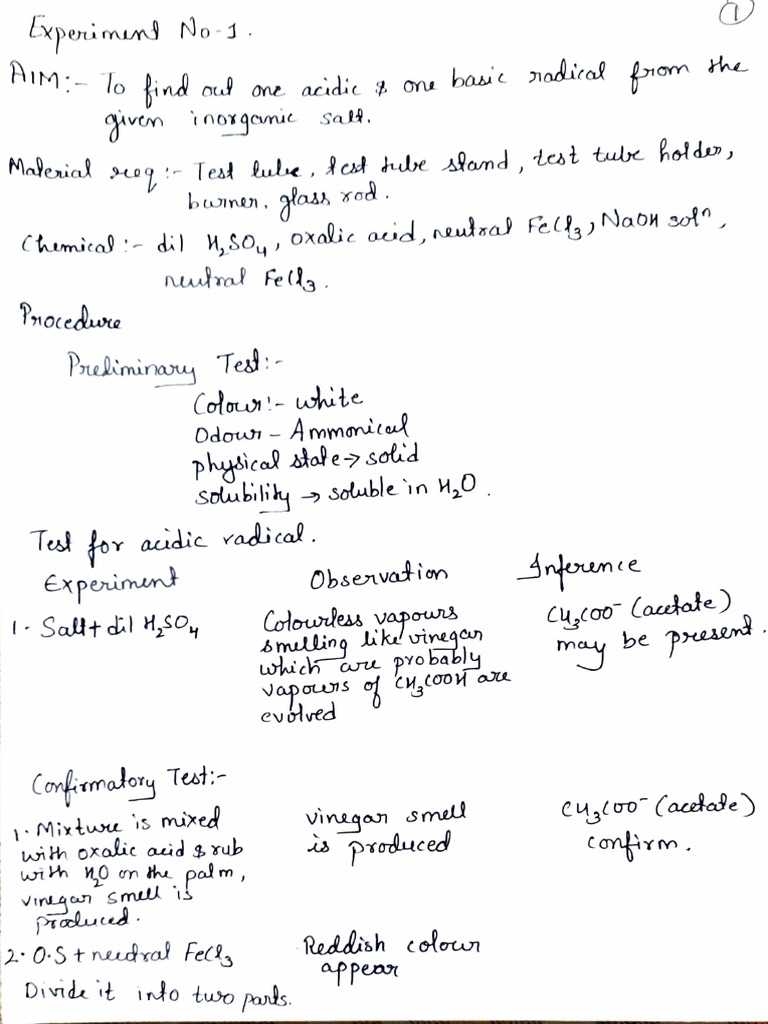 1
Experiment No-1.
AIM:- To find out one acidic & one basic radical from the
given inorganic salt.
Material req :- Test tube, test tube stand, test tube holder,
burner, glass rod.
Chemical :- dil H₂SO₄, oxalic acid, neutral FeCl₃, NaOH solⁿ,
neutral FeCl₃.
Procedure
Preliminary Test:-
Colour:- white
Odour - Ammonical
physical state → solid
solubility → soluble in H₂O.
Test for acidic radical.
Experiment Observation Inference
1. Salt + dil H₂SO₄ Colourless vapours CH₃COO⁻ (acetate)
smelling like vinegar may be present.
which are probably
vapours of CH₃COOH are
evolved
Confirmatory Test:-
1. Mixture is mixed vinegar smell CH₃COO⁻ (acetate)
with oxalic acid & rub is produced confirm.
with H₂O on the palm,
vinegar smell is
produced.
2. O.S + neutral FeCl₃ Reddish colour
appear
Divide it into two parts.